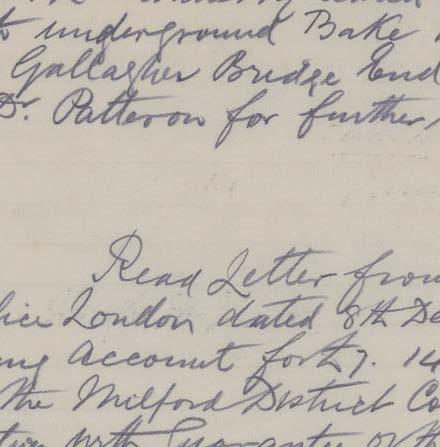 underground Bake
Gallagher Bridge End
Dr. Patterson for further
Read Letter from
London dated 8th De
account for £7. 14
the Milford District Co
with Guarantee of